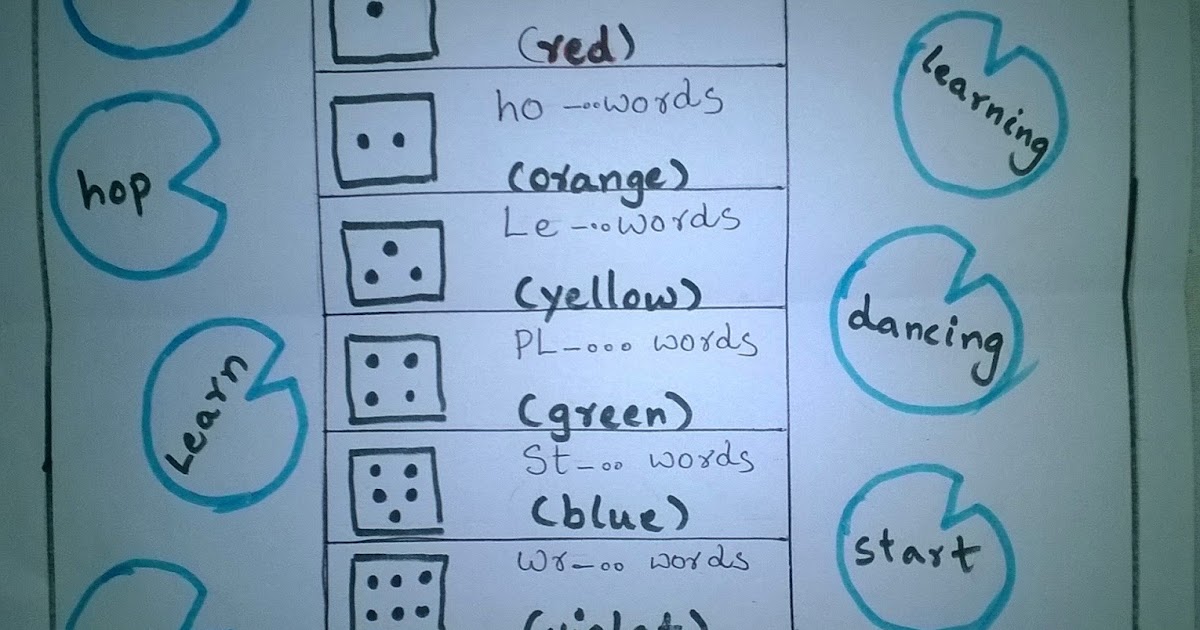 (red)
ho -..words
(orange)
Le -..words
(yellow)
PL-... words
(green)
St-.. words
(blue)
Wr-.. words
(violet)
hop
Learn
learning
dancing
start